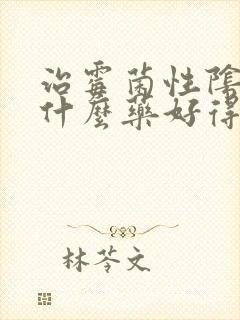 治霉菌性陰
什麼藥好得
林苓文